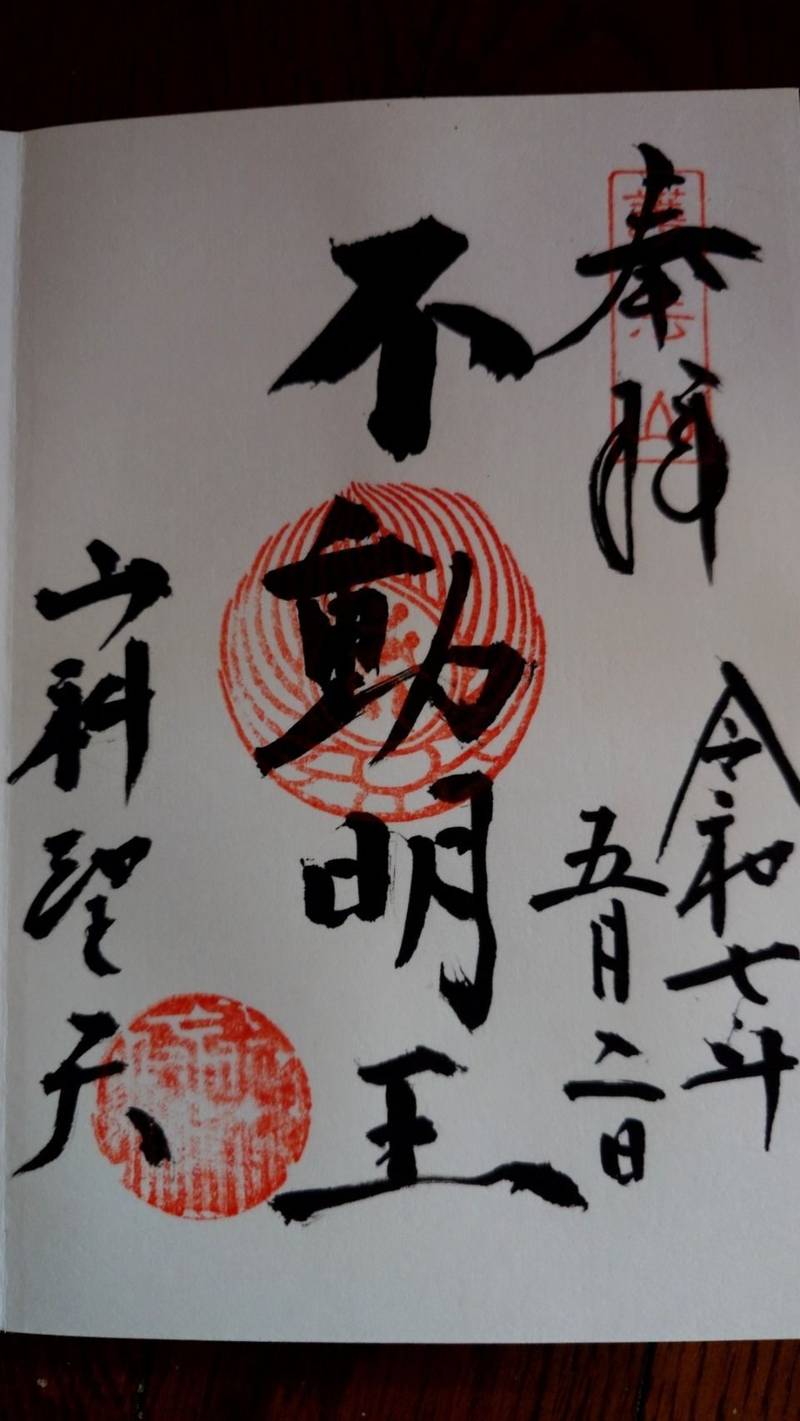 奉拝
令和七年
五月二日
不動明王
山科聖天